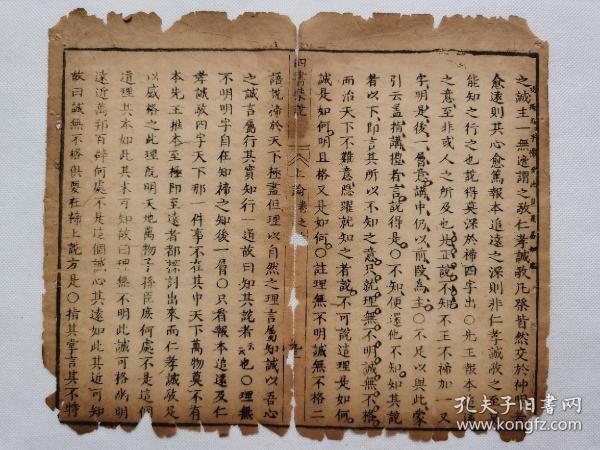 之誠主一無適謂之敬仁孝誠敬凡祭皆然交於神明
愈遠則其心愈篤報本追遠之深則非仁孝誠敬之至
能知之行之也說得莫深於禘四字出〇先王報本追遠
之意至非或人之所及也此正說不知不王不禘加一又
字明是後一層意議中仍以前段為主〇不足以與此蒙
引云盖指議禮者言說得是〇不知便還他不知如其說
者以下即言其所以不知之意只就理無不明誠無不格
而治天下不難意隱躍就知之者說不可說這理是如何
誠是如何明且格又是如何〇註理無不明誠無不格二
四書
上論
卷之
語說禘於天下極盡但理以自然之理言屬知誠以吾心
之誠言屬行其實知行一道故曰知其說者云云也〇理無
不明明字自在知禘之知後一層〇只看報本追遠及仁
孝誠敬四字天下那一件事不在其中天下萬物莫不有
本先王推本至極即至遠者都探討出來而仁孝誠敬足
以感格之此理旣明天地萬物子孫臣庶何處不是這個
道理其本如此其末可知故曰理無不明此誠可格幽明
遠近萬邦百辟何處不是這個誠心其遠如此其近可知
故曰誠無不格俱要在禘上說方是〇指其掌言其不特
孔夫子旧书网
www.kongfz.com